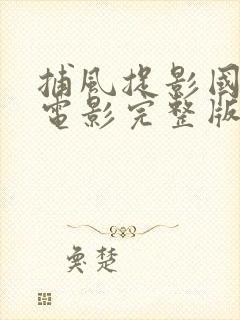 捕風捉影國
電影完整版
奐楚